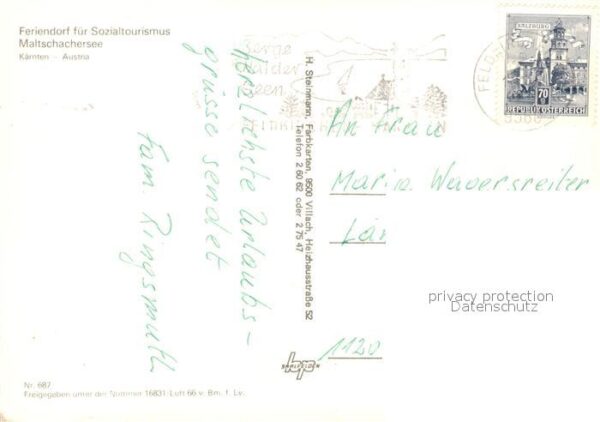 Feriendorf für Sozialtourismus
Maltschachersee
Kärnten - Austria
herzlichste Urlaubs-
grüsse sendet
Fam. Ringsmuth
H. Steinmann, Farbkarten, 9500 Villach, Heizhausstraße 52
Telefon 2 60 62 oder 2 75 47
Berge
Wälder
Seen
SALZBURG
70
REPUBLIK ÖSTERREICH
An Frau
Maria Waversreiter
1120
privacy protection
Datenschutz
SAALFELDEN
Nr. 687
Freigegeben unter der Nummer 16831-Luft 66 v. Bm. f. Lv.